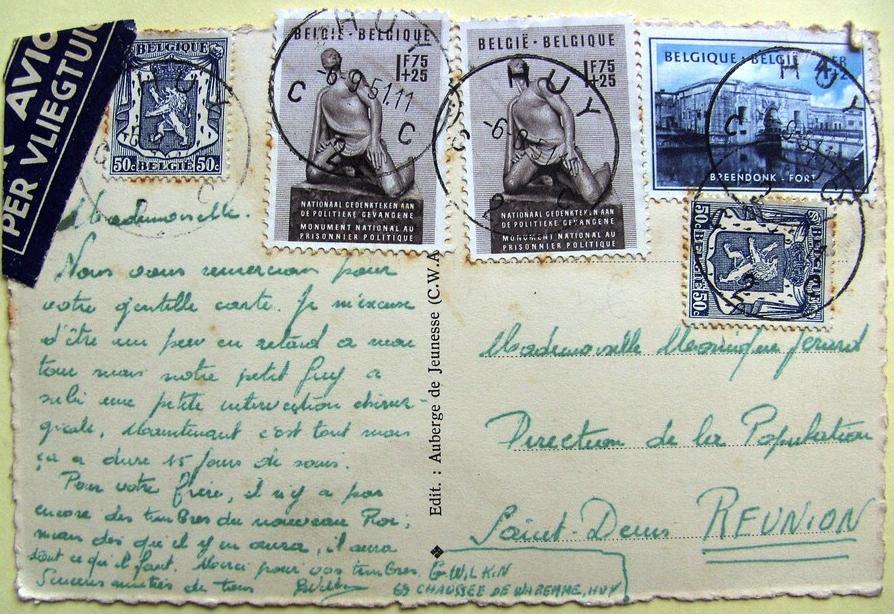 PAR AVION
PER VLIEGTUIG
BELGIQUE
50c BELGIË 50c
BELGIË - BELGIQUE
1F75
+25
NATIONAAL GEDENKTEKEN AAN
DE POLITIEKE GEVANGENE
MONUMENT NATIONAL AU
PRISONNIER POLITIQUE
HUY
-6-9 51.11
C C
2
BELGIË - BELGIQUE
1F75
+25
NATIONAAL GEDENKTEKEN AAN
DE POLITIEKE GEVANGENE
MONUMENT NATIONAL AU
PRISONNIER POLITIQUE
HUY
BELGIQUE - BELGIË
BREENDONK - FORT
HUY
BELGIQUE
50c BELGIË 50c
Mademoiselle.
Nous vous remercions pour
votre gentille carte. Je m'excuse
d'être un peu en retard a mon
tour mais notre petit Guy a
subi une petite intervention chirur-
gicale, Maintenant c'est tout mais
ça a duré 15 jours de soins.
Pour votre frère, il n'y a pas
encore des timbres du nouveau Roi;
mais dès qu'il y en aura, il aura
tout ce qu'il faut. Merci pour vos timbres.
Sincères amitiés de tous
G. WILKIN
69 CHAUSSÉE DE WAREMME, HUY
Edit. : Auberge de Jeunesse (C.W.A
Mademoiselle Monique Gérard
Direction de la Population
Saint-Denis REUNION